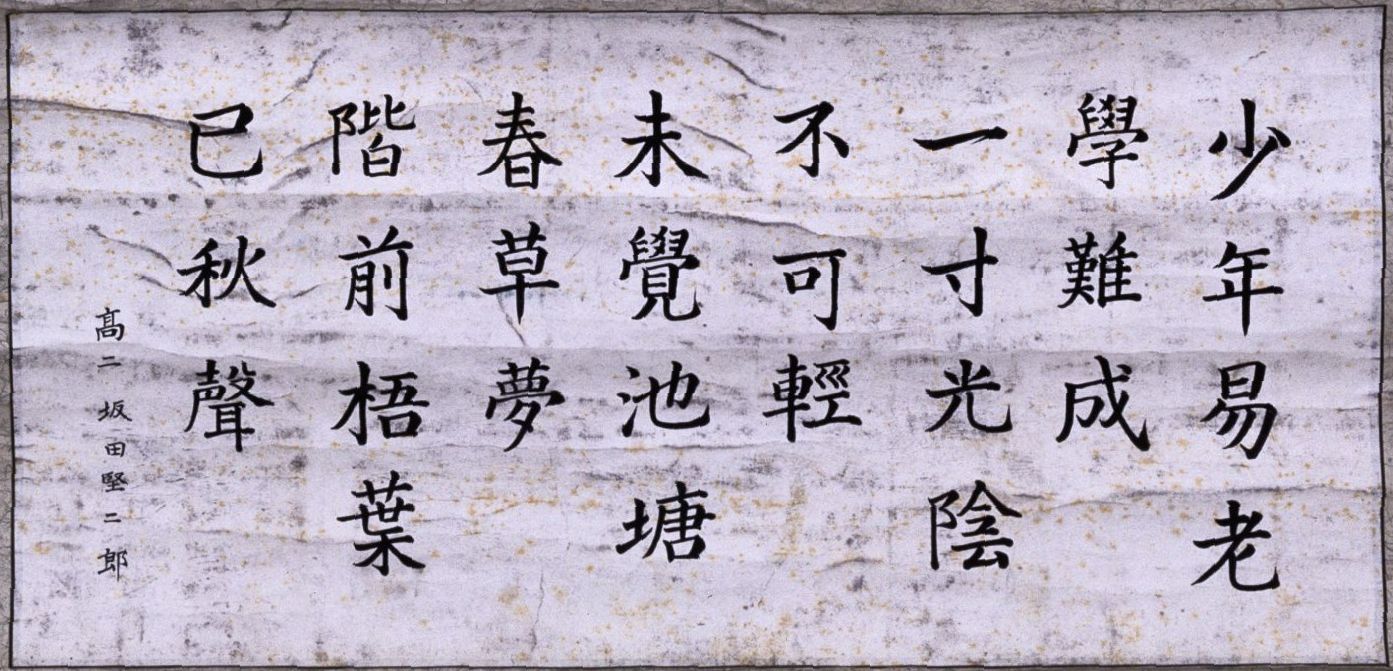 少年易老
學難成
一寸光陰
不可輕
未覺池塘
春草夢
階前梧葉
已秋聲
高二 坂田堅二郎